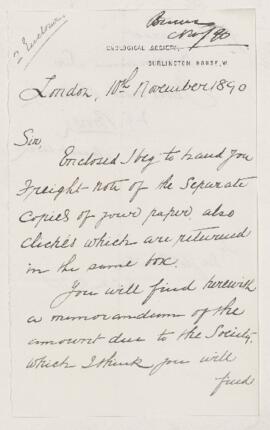 2 Enclosures
Nov/90
GEOLOGICAL SOCIETY,
BURLINGTON HOUSE, W.
London, 10th November 1890
Sir,
Enclosed I beg to hand you
Freight-note of the Separate
Copies of your paper, also
clichés which are returned
in the same box.
You will find herewith
a memorandum of the
amount due to the Society,
which I think you will
find